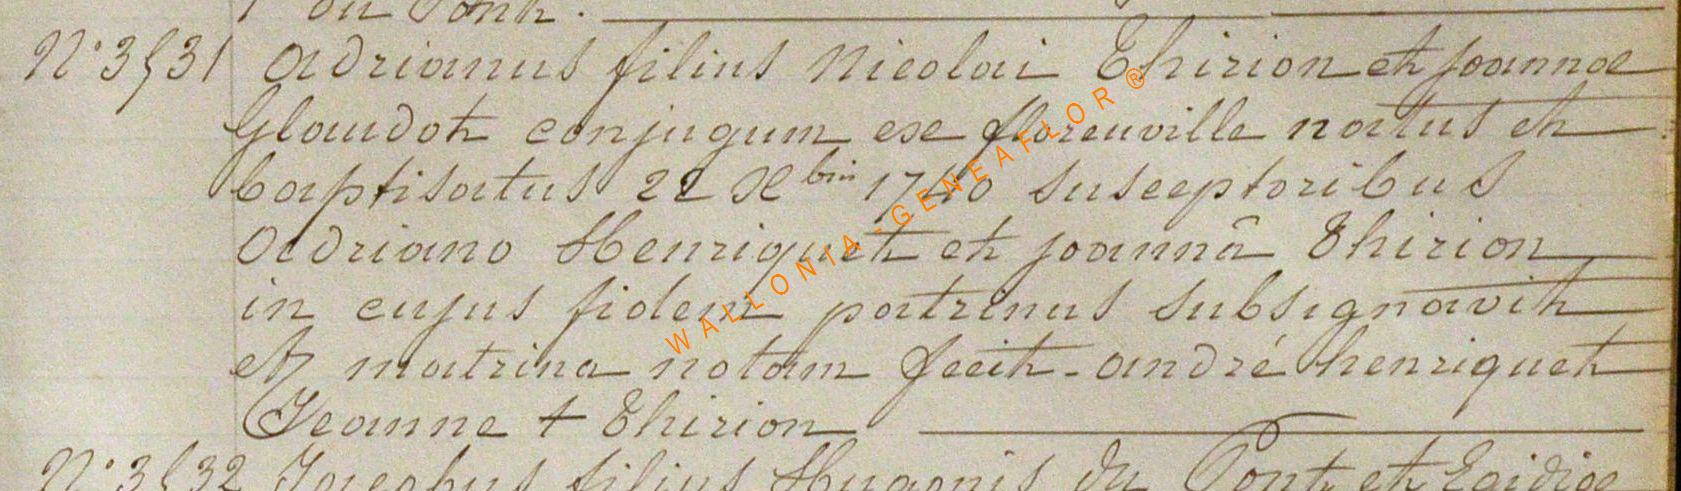 du Pont.
N° 3531 Adrianus filius Nicolai Thirion et Joannae
Glaudot conjugum ex florenville natus et
baptisatus 22 Xbris 1740 susceptoribus
Adriano Henriquet et joannâ Thirion
in cujus fidem patrinus subsignavit
et matrina notam fecit - andré henriquet
Jeanne + Thirion
N° 3532 Jacobus filius Hugonis du Pont et Egidiae
WALLONIA - GENEAFLOR ®